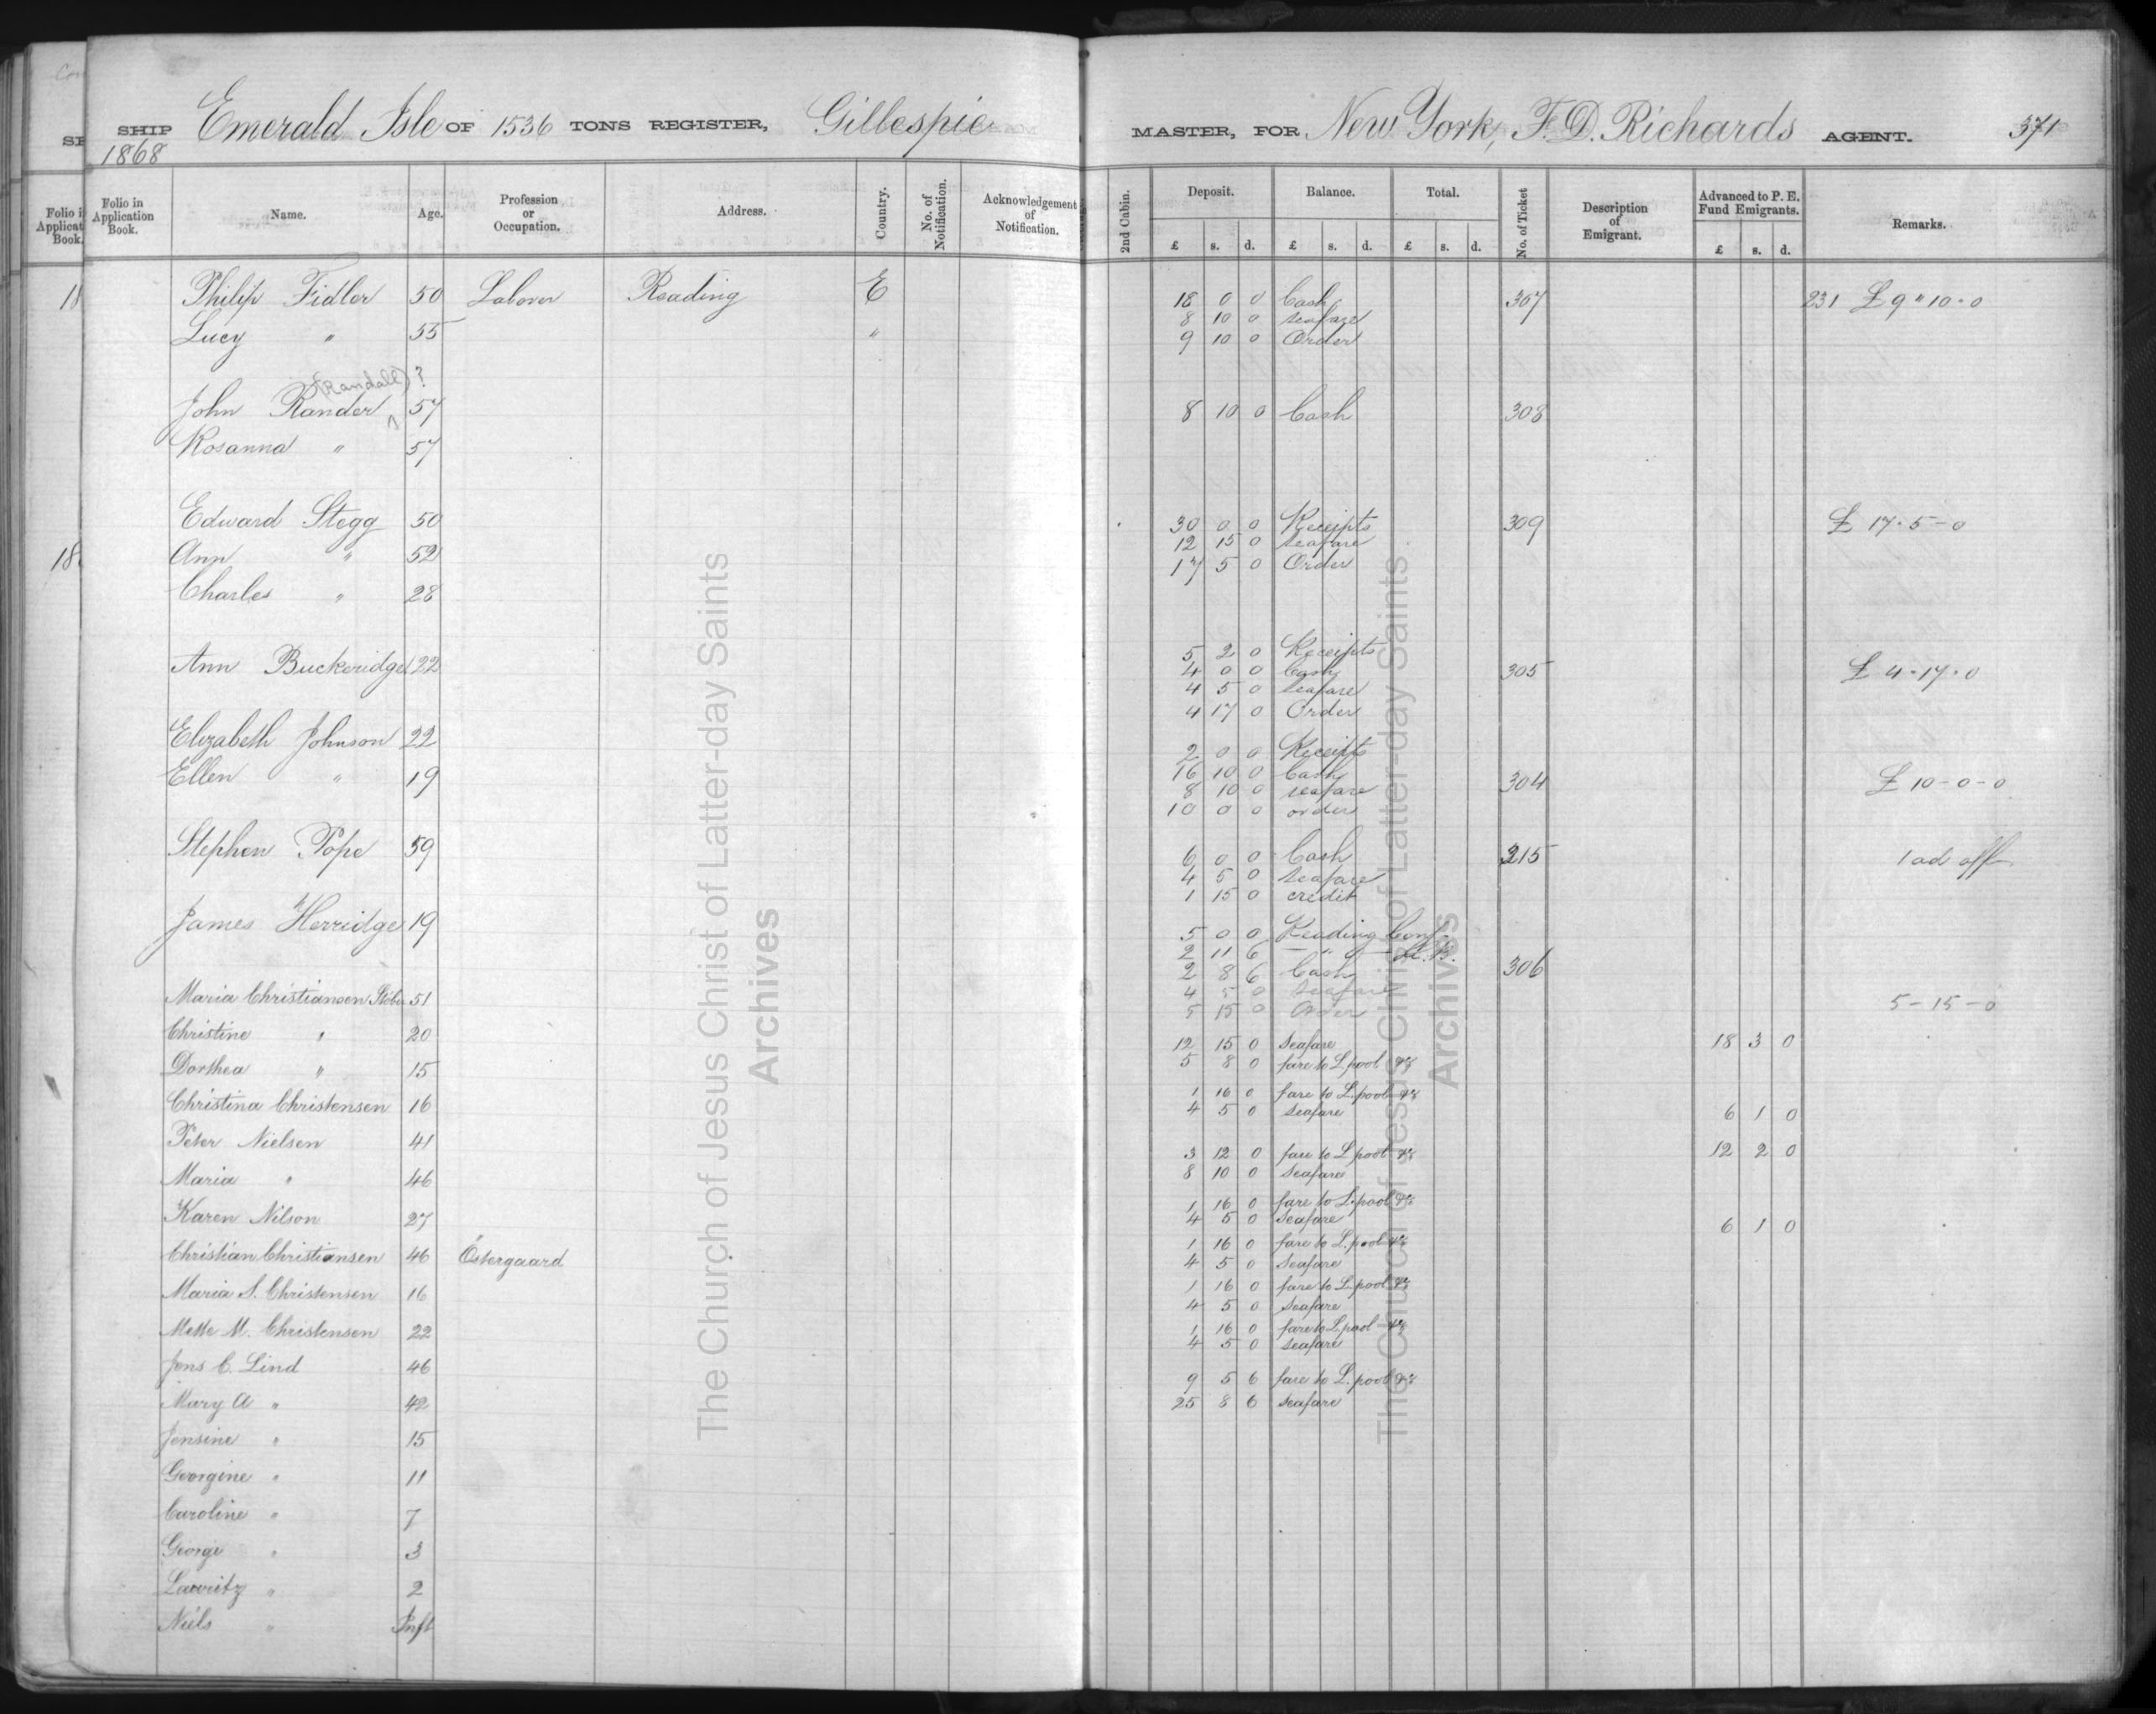 SHIP Emerald Isle OF 1536 TONS REGISTER, Gillespie MASTER, FOR New York, F. D. Richards AGENT. 371
1868
Folio in Application Book. Name. Age. Profession or Occupation. Address. Country. No. of Notification. Acknowledgement of Notification. 2nd Cabin. Deposit. £ s. d. Balance. £ s. d. Total. £ s. d. No. of Ticket Description of Emigrant. Advanced to P. E. Fund Emigrants. £ s. d. Remarks.
Philip Fidler 50 Laborer Reading E 18 0 0 Cash 307 231 £ 9 " 10 . 0
8 10 0 seafare
Lucy " 55 " 9 10 0 Order
(Randall) ?
John Rander 57 8 10 0 Cash 308
Rosanna " 57
Edward Stegg 50 30 0 0 Receipts 309 £ 17 . 5 - 0
12 15 0 seafare
Ann " 52 17 5 0 Order
Charles " 28
5 2 0 Receipts
Ann Buckeridge 22 4 0 0 Cash 305 £ 4 . 17 . 0
4 5 0 seafare
4 17 0 Order
Elizabeth Johnson 22 2 0 0 Receipts
Ellen " 19 16 10 0 Cash 304 £ 10 - 0 - 0
8 10 0 seafare
10 0 0 order
Stephen Pope 59 6 0 0 Cash 215 1 ad off
4 5 0 seafare
1 15 0 credit
James Herridge 19 5 0 0 Reading Conf.
2 11 6 - " -
2 8 6 Cash 306
4 5 0 Seafare
Maria Christiansen 51 5 15 0 Order 5 - 15 - 0
Christine " 20 12 15 0 Seafare 18 3 0
Dorthea " 15 5 8 0 fare to L.pool &c
Christina Christensen 16 1 16 0 fare to L.pool &c
4 5 0 Seafare 6 1 0
Peter Nielsen 41 3 12 0 fare to L.pool &c 12 2 0
Maria " 46 8 10 0 Seafare
Karen Nilson 27 1 16 0 fare to L.pool &c
4 5 0 Seafare 6 1 0
Christian Christiansen 46 Östergaard 1 16 0 fare to L.pool &c
4 5 0 Seafare
Maria S. Christensen 16 1 16 0 fare to L.pool &c
4 5 0 Seafare
Mette M. Christensen 22 1 16 0 fare to L.pool &c
4 5 0 seafare
Jens C. Lind 46 9 5 6 fare to L.pool &c
Mary A " 42 25 8 6 seafare
Jensine " 15
Georgine " 11
Caroline " 7
George " 3
Lauritz " 2
Niels " Inft
The Church of Jesus Christ of Latter-day Saints
Archives
The Church of Jesus Christ of Latter-day Saints
Archives